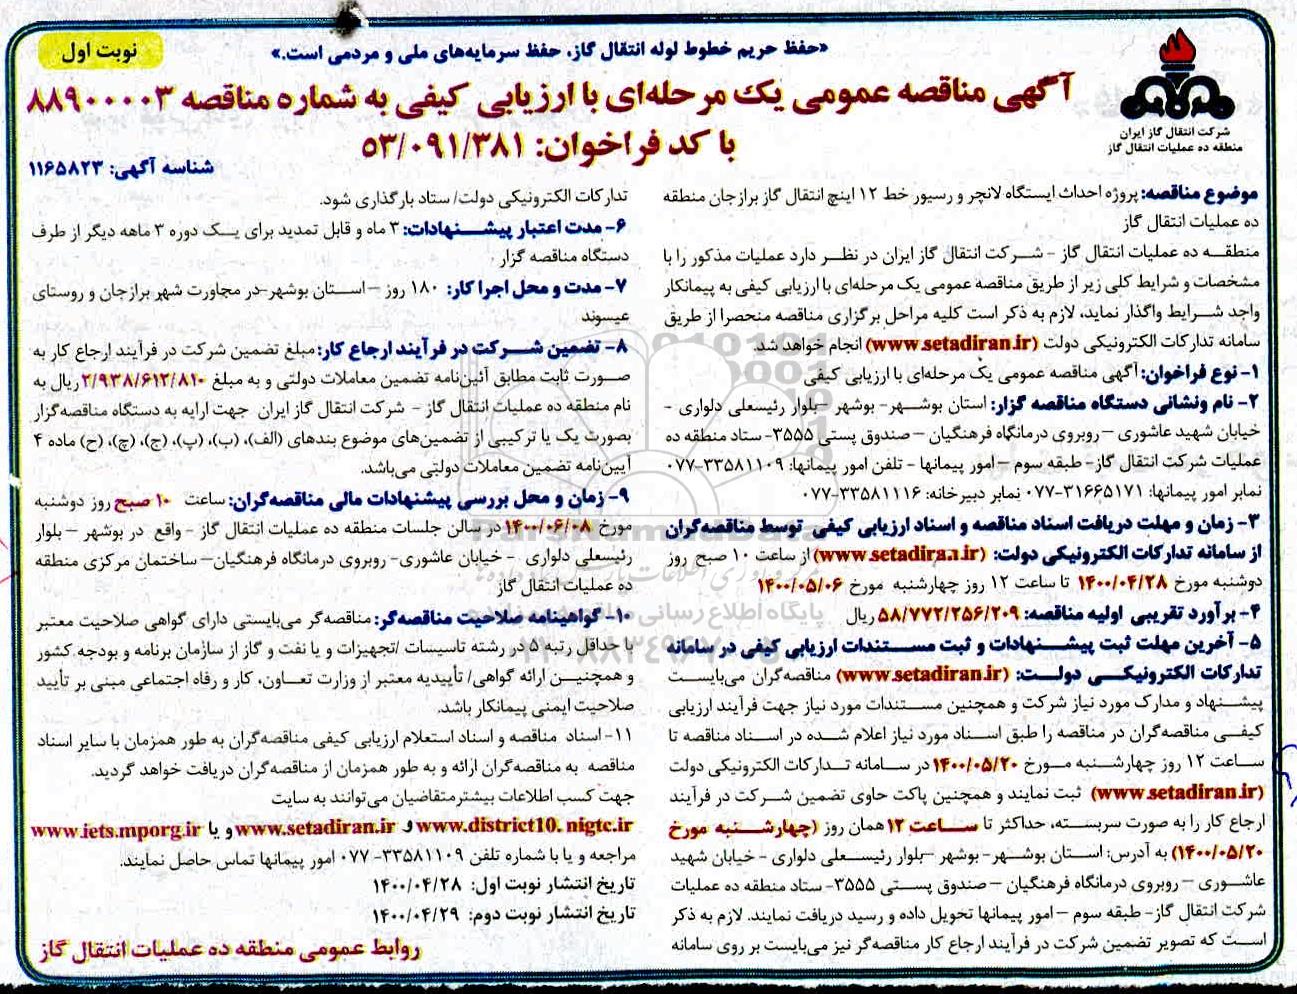 نوبت اول
«حفظ حریم خطوط لوله انتقال گاز، حفظ سرمایه‌های ملی و مردمی است.»
آگهی مناقصه عمومی یک مرحله‌ای با ارزیابی کیفی به شماره مناقصه ۸۸۹۰۰۰۰۳
با کد فراخوان: ۵۳/۰۹۱/۳۸۱
شناسه آگهی: ۱۱۶۵۸۲۳
شرکت انتقال گاز ایران
منطقه ده عملیات انتقال گاز
موضوع مناقصه: پروژه احداث ایستگاه لانچر و رسیور خط ۱۲ اینچ انتقال گاز برازجان منطقه
ده عملیات انتقال گاز
منطقه ده عملیات انتقال گاز - شرکت انتقال گاز ایران در نظر دارد عملیات مذکور را با
مشخصات و شرایط کلی زیر از طریق مناقصه عمومی یک مرحله‌ای با ارزیابی کیفی به پیمانکار
واجد شرایط واگذار نماید، لازم به ذکر است کلیه مراحل برگزاری مناقصه منحصرا از طریق
سامانه تدارکات الکترونیکی دولت (www.setadiran.ir) انجام خواهد شد.
۱- نوع فراخوان: آگهی مناقصه عمومی یک مرحله‌ای با ارزیابی کیفی
۲- نام ونشانی دستگاه مناقصه گزار: استان بوشهر- بوشهر –بلوار رئیسعلی دلواری -
خیابان شهید عاشوری – روبروی درمانگاه فرهنگیان – صندوق پستی ۳۵۵۵- ستاد منطقه ده
عملیات شرکت انتقال گاز- طبقه سوم – امور پیمانها - تلفن امور پیمانها: ۳۳۵۸۱۱۰۹-۰۷۷
نمابر امور پیمانها: ۳۱۶۶۵۱۷۱-۰۷۷ نمابر دبیرخانه: ۳۳۵۸۱۱۱۶-۰۷۷
۳- زمان و مهلت دریافت اسناد مناقصه و اسناد ارزیابی کیفی توسط مناقصه‌گران
از سامانه تدارکات الکترونیکی دولت: (www.setadiran.ir) از ساعت ۱۰ صبح روز
دوشنبه مورخ ۱۴۰۰/۰۴/۲۸ تا ساعت ۱۲ روز چهارشنبه مورخ ۱۴۰۰/۰۵/۰۶
۴- برآورد تقریبی اولیه مناقصه: ۵۸/۷۷۲/۲۵۶/۲۰۹ ریال
۵- آخرین مهلت ثبت پیشنهادات و ثبت مستندات ارزیابی کیفی در سامانه
تدارکات الکترونیکی دولت: (www.setadiran.ir) مناقصه‌گران می‌بایست
پیشنهاد و مدارک مورد نیاز شرکت و همچنین مستندات مورد نیاز جهت فرآیند ارزیابی
کیفی مناقصه‌گران در مناقصه را طبق اسناد مورد نیاز اعلام شده در اسناد مناقصه تا
ساعت ۱۲ روز چهارشنبه مورخ ۱۴۰۰/۰۵/۲۰ در سامانه تدارکات الکترونیکی دولت
(www.setadiran.ir) ثبت نمایند و همچنین پاکت حاوی تضمین شرکت در فرآیند
ارجاع کار را به صورت سربسته، حداکثر تا ساعت ۱۲ همان روز (چهارشنبه مورخ
۱۴۰۰/۰۵/۲۰) به آدرس: استان بوشهر- بوشهر –بلوار رئیسعلی دلواری - خیابان شهید
عاشوری – روبروی درمانگاه فرهنگیان – صندوق پستی ۳۵۵۵- ستاد منطقه ده عملیات
شرکت انتقال گاز- طبقه سوم – امور پیمانها تحویل داده و رسید دریافت نمایند. لازم به ذکر
است که تصویر تضمین شرکت در فرآیند ارجاع کار مناقصه‌گر نیز می‌بایست بر روی سامانه
تدارکات الکترونیکی دولت/ ستاد بارگذاری شود.
۶- مدت اعتبار پیشنهادات: ۳ ماه و قابل تمدید برای یک دوره ۳ ماهه دیگر از طرف
دستگاه مناقصه گزار
۷- مدت و محل اجرا کار: ۱۸۰ روز – استان بوشهر-در مجاورت شهر برازجان و روستای
عیسوند
۸- تضمین شرکت در فرآیند ارجاع کار: مبلغ تضمین شرکت در فرآیند ارجاع کار به
صورت ثابت مطابق آئین‌نامه تضمین معاملات دولتی و به مبلغ ۲/۹۳۸/۶۱۲/۸۱۰ ریال به
نام منطقه ده عملیات انتقال گاز - شرکت انتقال گاز ایران جهت ارایه به دستگاه مناقصه‌گزار
بصورت یک یا ترکیبی از تضمین‌های موضوع بندهای (الف)، (ب)، (پ)، (ج)، (چ)، (ح) ماده ۴
آیین‌نامه تضمین معاملات دولتی می‌باشد.
۹- زمان و محل بررسی پیشنهادات مالی مناقصه‌گران: ساعت ۱۰ صبح روز دوشنبه
مورخ ۱۴۰۰/۰۶/۰۸ در سالن جلسات منطقه ده عملیات انتقال گاز - واقع در بوشهر – بلوار
رئیسعلی دلواری - خیابان عاشوری- روبروی درمانگاه فرهنگیان– ساختمان مرکزی منطقه
ده عملیات انتقال گاز
۱۰- گواهینامه صلاحیت مناقصه‌گر: مناقصه‌گر می‌بایستی دارای گواهی صلاحیت معتبر
با حداقل رتبه ۵ در رشته تاسیسات /تجهیزات و یا نفت و گاز از سازمان برنامه و بودجه کشور
و همچنین ارائه گواهی/ تأییدیه معتبر از وزارت تعاون، کار و رفاه اجتماعی مبنی بر تأیید
صلاحیت ایمنی پیمانکار باشد.
۱۱- اسناد مناقصه و اسناد استعلام ارزیابی کیفی مناقصه‌گران به طور همزمان با سایر اسناد
مناقصه به مناقصه‌گران ارائه و به طور همزمان از مناقصه‌گران دریافت خواهد گردید.
جهت کسب اطلاعات بیشترمتقاضیان می‌توانند به سایت
www.district10.nigtc.ir و www.setadiran.ir و یا www.iets.mporg.ir
مراجعه و یا با شماره تلفن ۳۳۵۸۱۱۰۹-۰۷۷ امور پیمانها تماس حاصل نمایند.
تاریخ انتشار نوبت اول: ۱۴۰۰/۰۴/۲۸
تاریخ انتشار نوبت دوم: ۱۴۰۰/۰۴/۲۹
روابط عمومی منطقه ده عملیات انتقال گاز